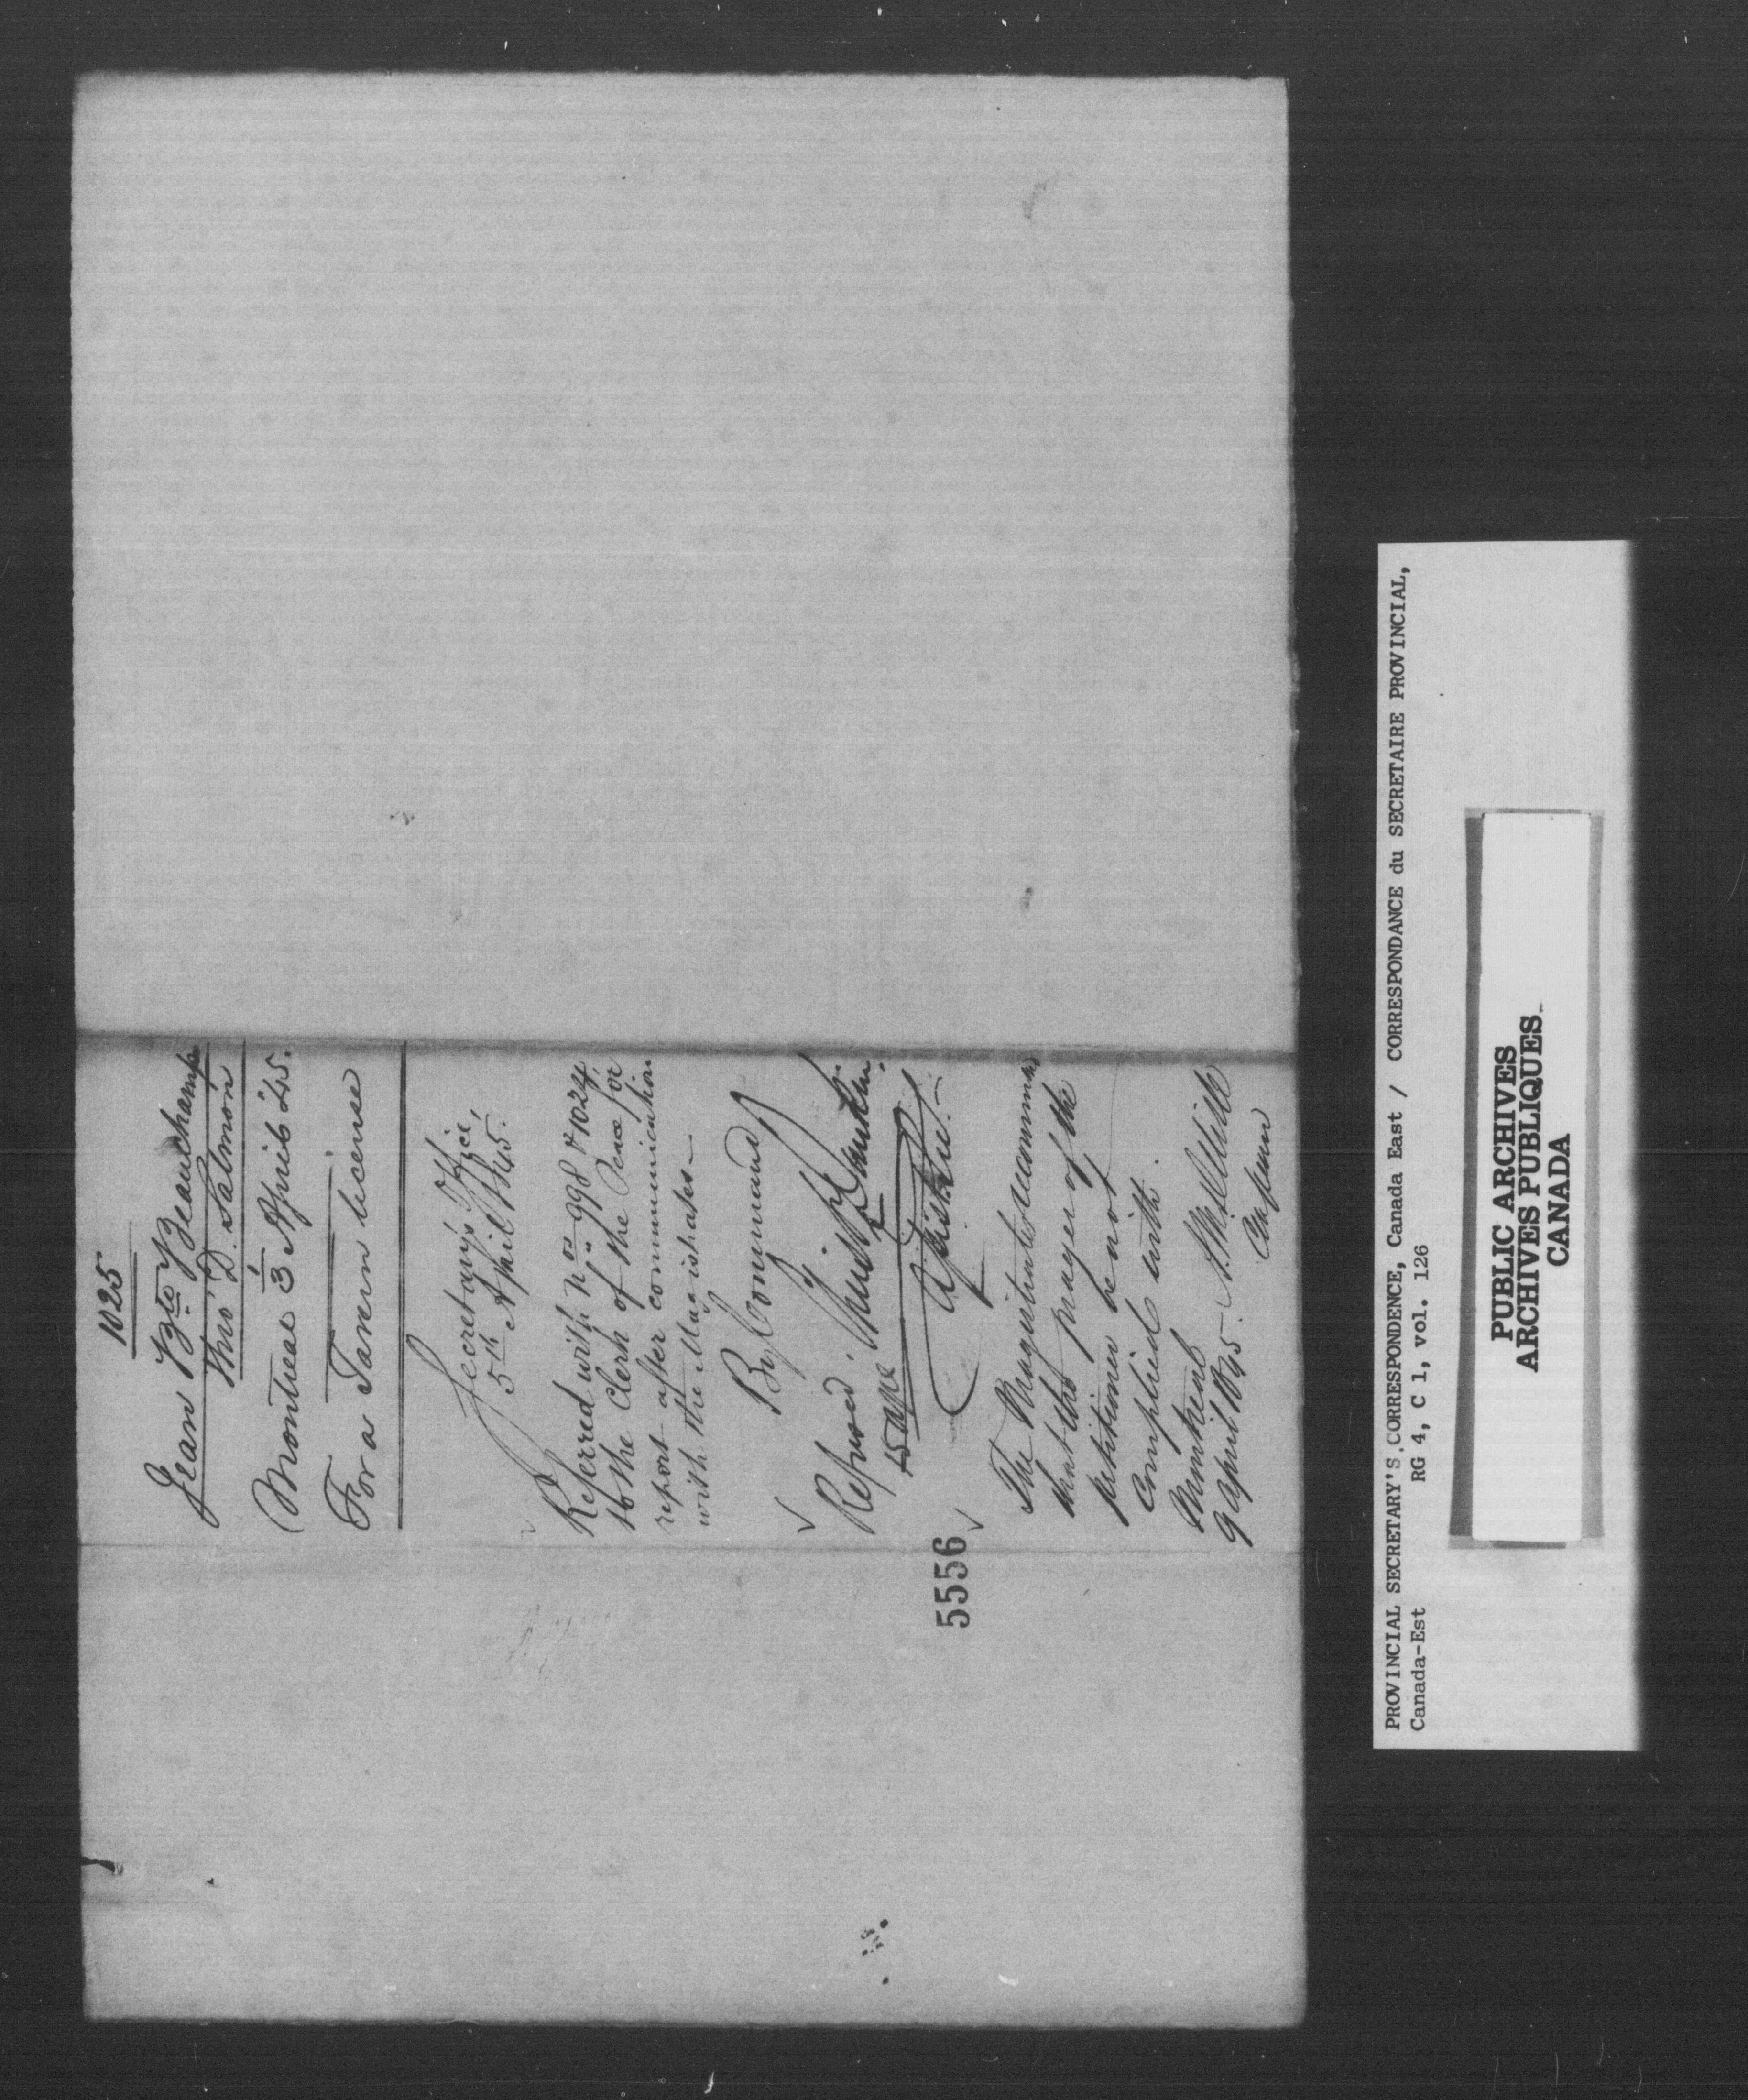 1025
Jean Bte Beauchamp
Thos D. Salmon
Montreal 3 April '45.
For a Tavern license
Secretary's Office,
5th April 1845.
Referred with Nos 998 & 1024,
to the Clerk of the Peace for
report after communication
with the Magistrates—
By Command
Refused.
15 Apl
5556
The Magistrates recommend
that the prayer of the
petitioner be not
complied with.
Montreal
9 April 1845.
PROVINCIAL SECRETARY'S CORRESPONDENCE, Canada East / CORRESPONDANCE du SECRETAIRE PROVINCIAL,
Canada-Est RG 4, C 1, vol. 126
PUBLIC ARCHIVES
ARCHIVES PUBLIQUES
CANADA